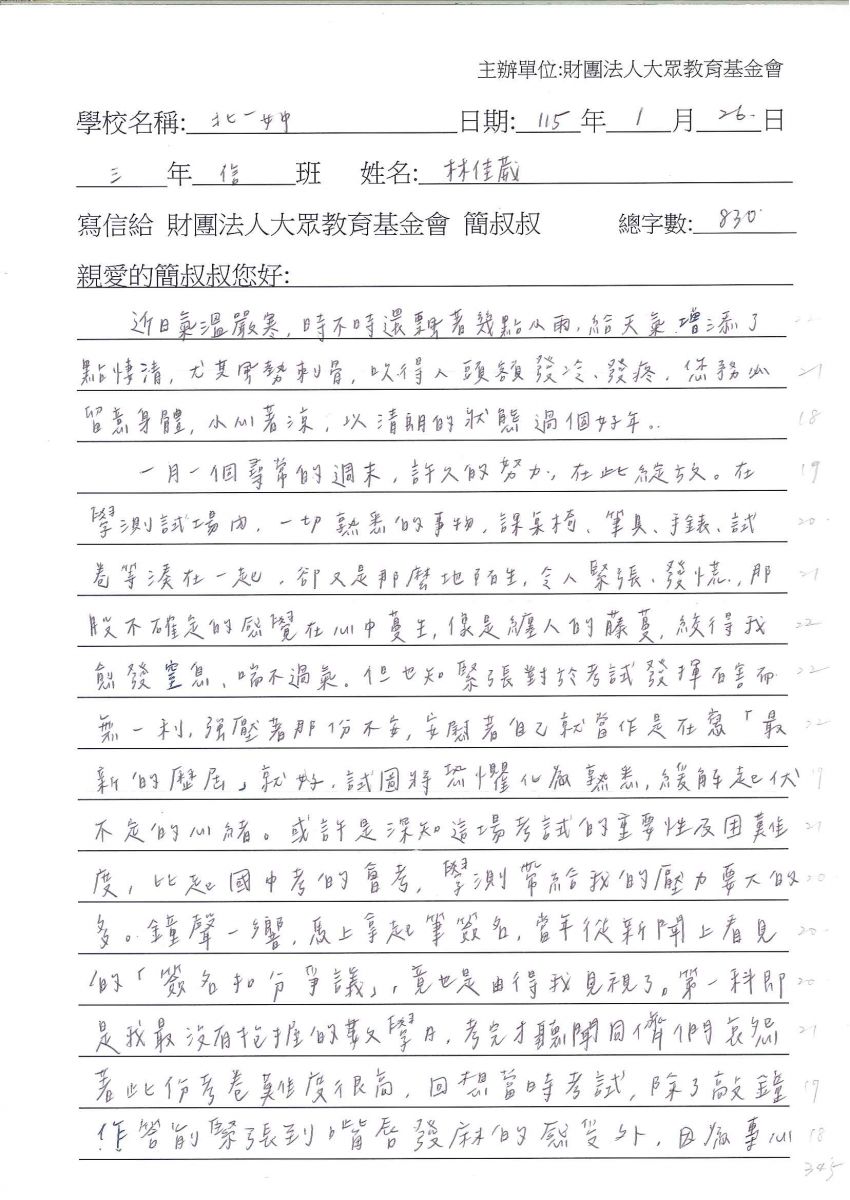 主辦單位:財團法人大眾教育基金會
學校名稱: 北一女中 日期: 115 年 1 月 26. 日
三 年 信 班 姓名: 林佳葳
寫信給 財團法人大眾教育基金會 簡叔叔 總字數: 830.
親愛的簡叔叔您好:
近日氣溫嚴寒,時不時還飄著幾點小雨,給天氣增添了
點悽清,尤其風勢刺骨,吹得人頭額發冷、發疼,您務必 21
留意身體,小心著涼,以清朗的狀態過個好年。 18
一月一個尋常的週末,許久的努力,在此綻放。在 19
學測試場內,一切熟悉的事物,課桌椅、筆具、手錶、試 20
卷等湊在一起,卻又是那麼地陌生,令人緊張、發慌,那 21
股不確定的感覺在心中蔓生,像是纏人的藤蔓,絞得我 22
愈發窒息、喘不過氣。但也知緊張對於考試發揮百害而 22
無一利,強壓著那份不安,安慰著自己就當作是在寫「最 22
新的歷屆」就好,試圖將恐懼化為熟悉,緩解起伏 19
不定的心緒。或許是深知這場考試的重要性及困難 21
度,比起國中考的會考,學測帶給我的壓力要大的 20
多。鐘聲一響,馬上拿起筆簽名,當年從新聞上看見 20
的「簽名扣分爭議」,竟也是由得我見視了。第一科即 20
是我最沒有把握的數學A,考完才聽聞同儕們哀怨 21
著此份考卷難度很高,回想當時考試,除了敲鐘 19
作答前緊張到嘴唇發麻的感受外,因為專心 18
345